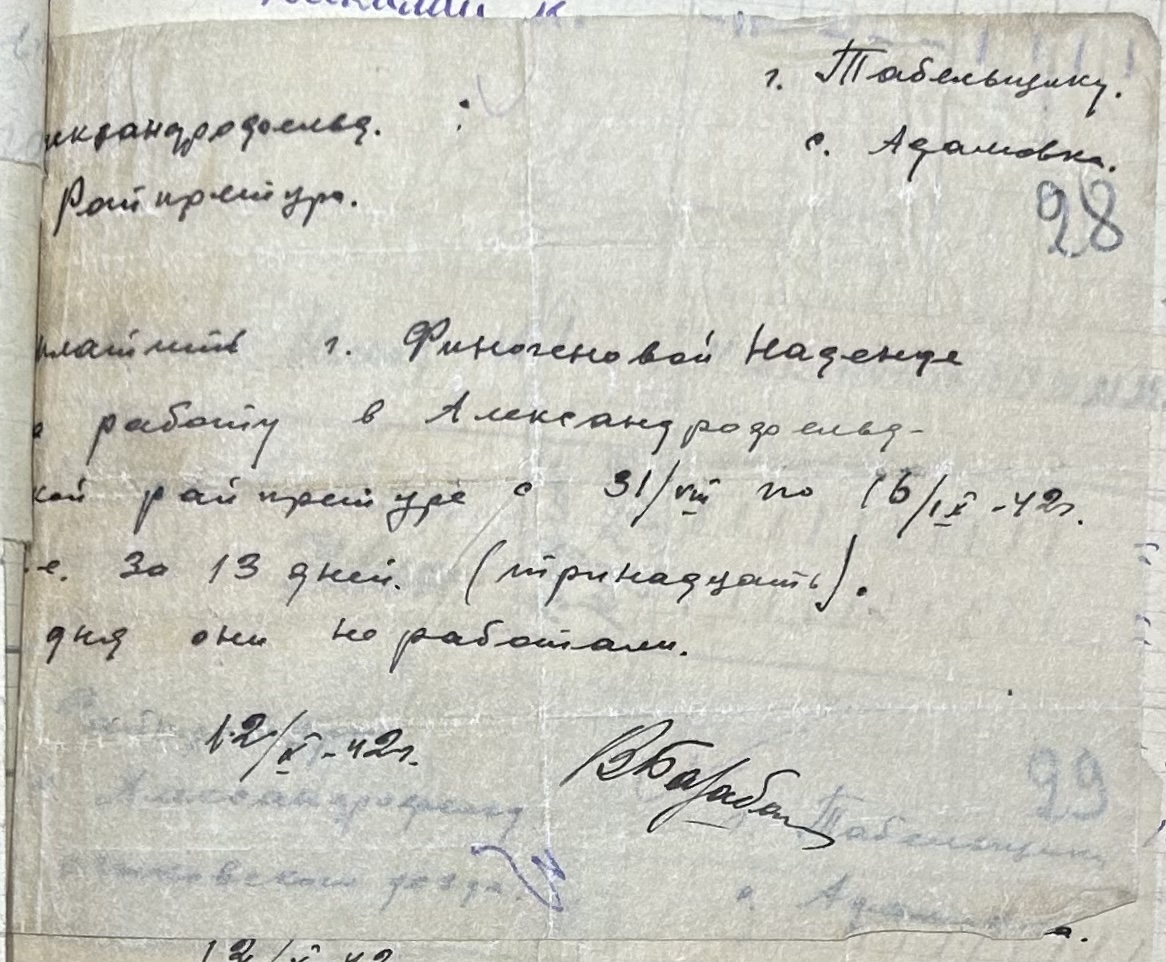 г. Табельщику.
с. Адамовка.
ександрофельд.
Райпретура.
98
платить г. Финогеновой Надежде
работу в Александрофельд-
кой райпретуре с 31/VIII по 16/IX-42г.
.е. за 13 дней. (тринадцать).
дня они не работали.
12/X-42г.
ВБарабан
99
Александрофельд
Табельщику
уезда.
с. Адамовка.
12/X-42